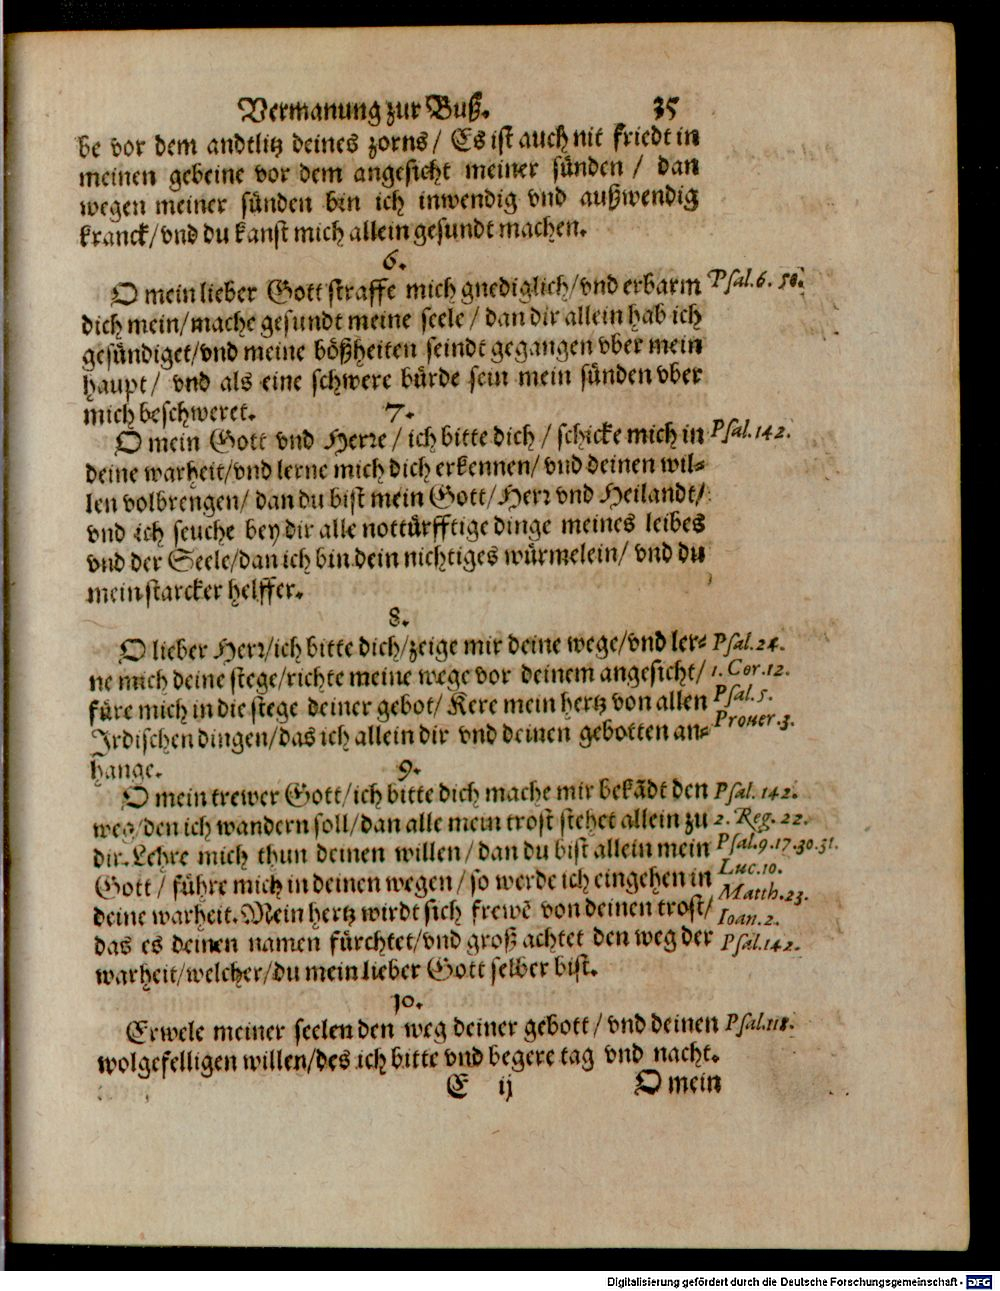 Vermanung zur Buß. 35
be vor dem andtlitz deines zorns / Es ist auch nit friedt in
meinen gebeine vor dem angesicht meiner sünden / dan
wegen meiner sünden bin ich inwendig vnd außwendig
kranck/vnd du kanst mich allein gesundt machen.
6.
O mein lieber Gott straffe mich gnediglich/vnd erbarm Psal. 6. 50.
dich mein/mache gesundt meine seele / dan dir allein hab ich
gesündiget/vnd meine bößheiten seindt gegangen vber mein
haupt / vnd als eine schwere bürde sein mein sünden vber
mich beschweret. 7.
O mein Gott vnd Herre / ich bitte dich / schicke mich in Psal. 142.
deine warheit/vnd lerne mich dich erkennen/ vnd deinen wil-
len volbrengen/ dan du bist mein Gott/Herr vnd Heilandt/
vnd ich seuche bey dir alle nottürfftige dinge meines leibes
vnd der Seele/dan ich bin dein nichtiges würmelein/ vnd du
mein starcker helffer.
8.
O lieber Herr/ich bitte dich/zeige mir deine wege/vnd ler- Psal. 24.
ne mich deine stege/richte meine wege vor deinem angesicht/ 1. Cor. 12.
füre mich in die stege deiner gebot/ Kere mein hertz von allen Psal. 5.
Irdischen dingen/das ich allein dir vnd deinen gebotten an- Prouer. 3.
hange. 9.
O mein trewer Gott/ich bitte dich mache mir bekãdt den Psal. 142.
weg/den ich wandern soll/dan alle mein trost stehet allein zu 2. Reg. 22.
dir. Lehre mich thun deinen willen / dan du bist allein mein Psal. 9. 17. 30. 31.
Gott / führe mich in deinen wegen / so werde ich eingehen in Luc. 10.
Matth. 23.
deine warheit. Mein hertz wirdt sich frewẽ von deinen trost/ Ioan. 2.
das es deinen namen fürchtet/vnd groß achtet den weg der Psal. 142.
warheit/welcher/du mein lieber Gott selber bist.
10.
Erwele meiner seelen den weg deiner gebott / vnd deinen Psal. 118.
wolgefelligen willen/des ich bitte vnd begere tag vnd nacht.
E ij O mein
Digitalisierung gefördert durch die Deutsche Forschungsgemeinschaft - DFG